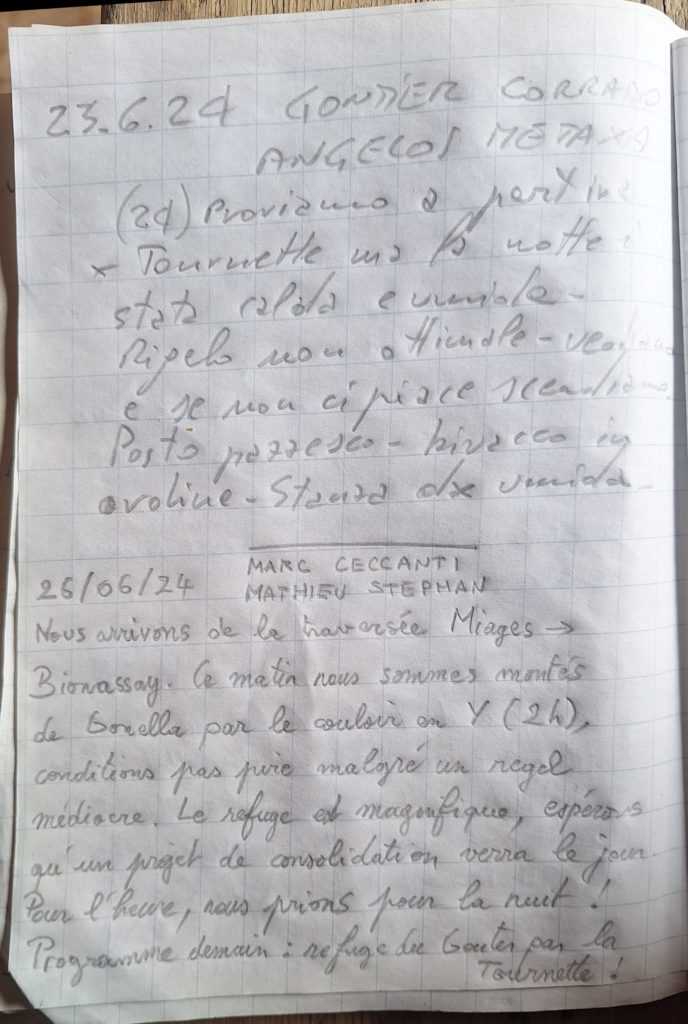 23.6.24 GONTIER CORRADO
ANGELOS METAXA
(24) Proviamo a partire
x Tournette ma la notte è
stata calda e umida -
Rigelo non ottimale - vediamo
e se non ci piace scendiamo.
Posto pazzesco - bivacco in
- Stanza dx umida -
26/06/24 MARC CECCANTI
MATHIEU STEPHAN
Nous arrivons de la traversée Miages →
Bionassay. Ce matin nous sommes montés
de Gonella par le couloir en Y (2h),
conditions pas pire malgré un regel
médiocre. Le refuge est magnifique, espérons
qu'un projet de consolidation verra le jour.
Pour l'heure, nous prions pour la nuit !
Programme demain : refuge du Gouter par la
Tournette !